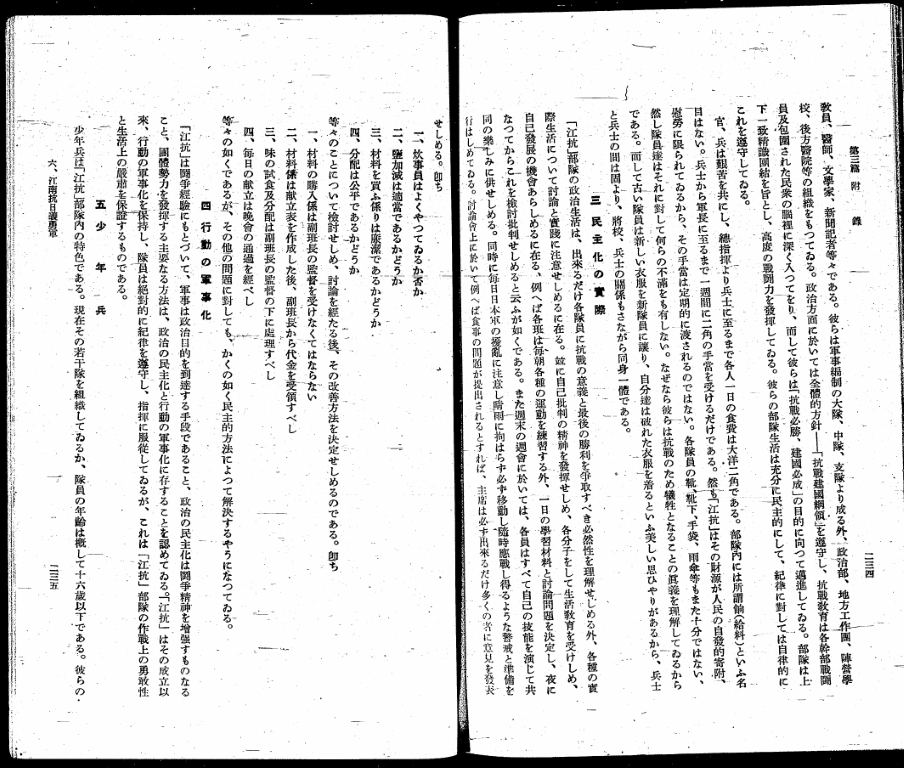 第三篇 附錄
二三四
敎員、醫師、文學家、新聞記者等々である。彼らは軍事編制の大隊、中隊、支隊より成る外、政治部、地方工作團、陣營學
校、後方醫院等の組織をもつてゐる。政治方面に於いては全體的方針——「抗戰建國綱領」を遵守し、抗戰敎育は各幹部戰鬪
員及包圍された民衆の腦裡に深く入つてをり、而して彼らは抗戰必勝、建國必成」の目的に向つて邁進してゐる。部隊は上
下一致精誠團結を旨とし、高度の戰鬪力を發揮してゐる。彼らの部隊生活は充分に民主的にして、紀律に對しては自律的に
これを遵守してゐる。
官、兵は艱苦を共にし、總指揮より兵士に至るまで各人一日の食費は大洋二角である。部隊內には所謂餉(給料)といふ名
目はない。兵士から軍長に至るまで一週間に二角の手當を受けるだけである。然も「江抗」はその財源が人民の自發的寄附、
慰勞に限られてゐるから、その手當は定期的に渡されるのではない。各隊員の靴、靴下、手袋、雨傘等もまた十分ではない、
然し隊員達はそれに對して何らの不滿をも有しない。なぜなら彼らは抗戰のため犧牲となることの眞義を理解してゐるから
である。而して古い隊員は新しい衣服を新隊員に讓り、自分達は破れた衣服を着るといふ美しい思ひやりがあるから、兵士
と兵士の間は固より、將校、兵士の關係もさながら同身一體である。
三 民主化の實際
「江抗」部隊の政治生活は、出來るだけ各隊員に抗戰の意義と最後の勝利を爭取すべき必然性を理解せしめる外、各種の實
際生活について討論と實踐に注意せしめるに在る。竝に自己批判の精神を發揮せしめ、各分子をして生活敎育を受けしめ、
自己發展の機會あらしめるに在る、例へば各班は每朝各種の運動を練習する外、一日の學習材料と討論問題を決定し、夜に
なつてからこれを檢討批判せしめると云ふが如くである。また週末の週會に於いては、各員はすべて自己の技能を演じて共
同の樂しみに供せしめる。同時に每日日本軍の擾亂に注意し晴雨に拘はらず必ず移動し隨時應戰し得るような警戒と準備を
行はしめてゐる。討論會上に於いて例へば食事の問題が提出されるとすれば、主席は必ず出來るだけ多くの者に意見を發表
せしめる。卽ち
一、炊事員はよくやつてゐるか否か
二、鹽加減は適當であるかどうか
三、材料を買ふ係りは廉潔であるかどうか
四、分配は公平であるかどうか
等々のことについて檢討せしめ、討論を經たる後、その改善方法を決定せしめるのである。卽ち
一、材料の購入係は副班長の監督を受けなくてはならない
二、材料係は獻立表を作成した後、副班長から代金を受領すべし
三、味の試食及分配は副班長の監督の下に處理すべし
四、每日の獻立は晚會の通過を經べし
等々の如くであるが、その他の問題に對しても、かくの如く民主的方法によつて解決するやうになつてゐる。
四 行動の軍事化
「江抗」は鬪爭經驗にもとづいて、軍事は政治目的を到達する手段であること、政治の民主化は鬪爭精神を增强すものなる
こと、團體勢力を發揮する主要なる方法は、政治の民主化と行動の軍事化に存することを認めてゐる。「江抗」はその成立以
來、行動の軍事化を保持し、隊員は絕對的に紀律を遵守し、指揮に服從してゐるが、これは「江抗」部隊の作戰上の勇敢性
と生活上の嚴肅を保證するものである。
五 少年兵
少年兵は「江抗」部隊內の特色である。現在その若干隊を組織してゐるか、隊員の年齡は槪して十六歲以下である。彼らの・
六、江南抗日義勇軍
二三五